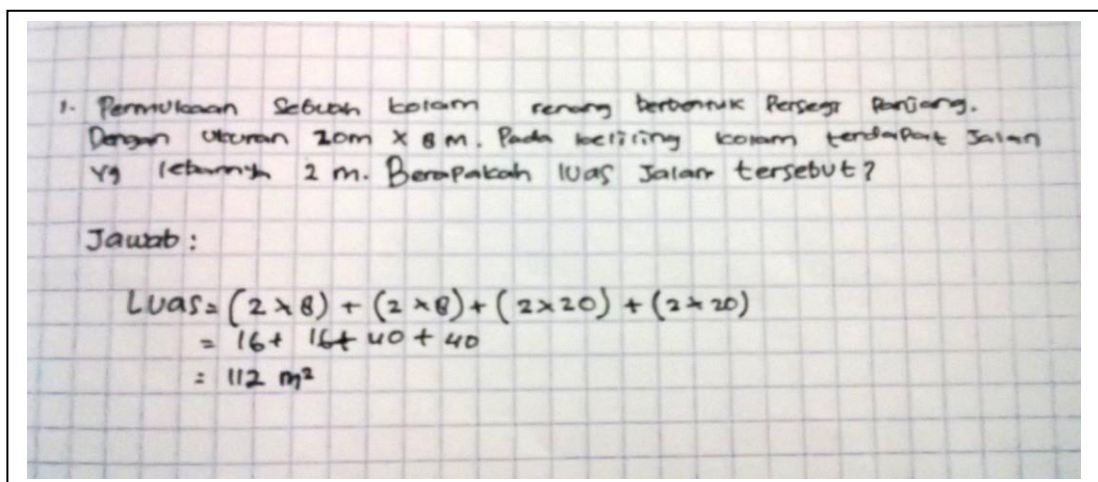 1. Permukaan Sebuah kolam renang berbentuk Persegi Panjang.
Dengan ukuran 20m x 8 m. Pada keliling kolam terdapat Jalan
yg lebarnya 2 m. Berapakah luas Jalan tersebut?
Jawab:
Luas = (2 x 8) + (2 x 8) + (2 x 20) + (2 x 20)
= 16 + 16 + 40 + 40
= 112 m²